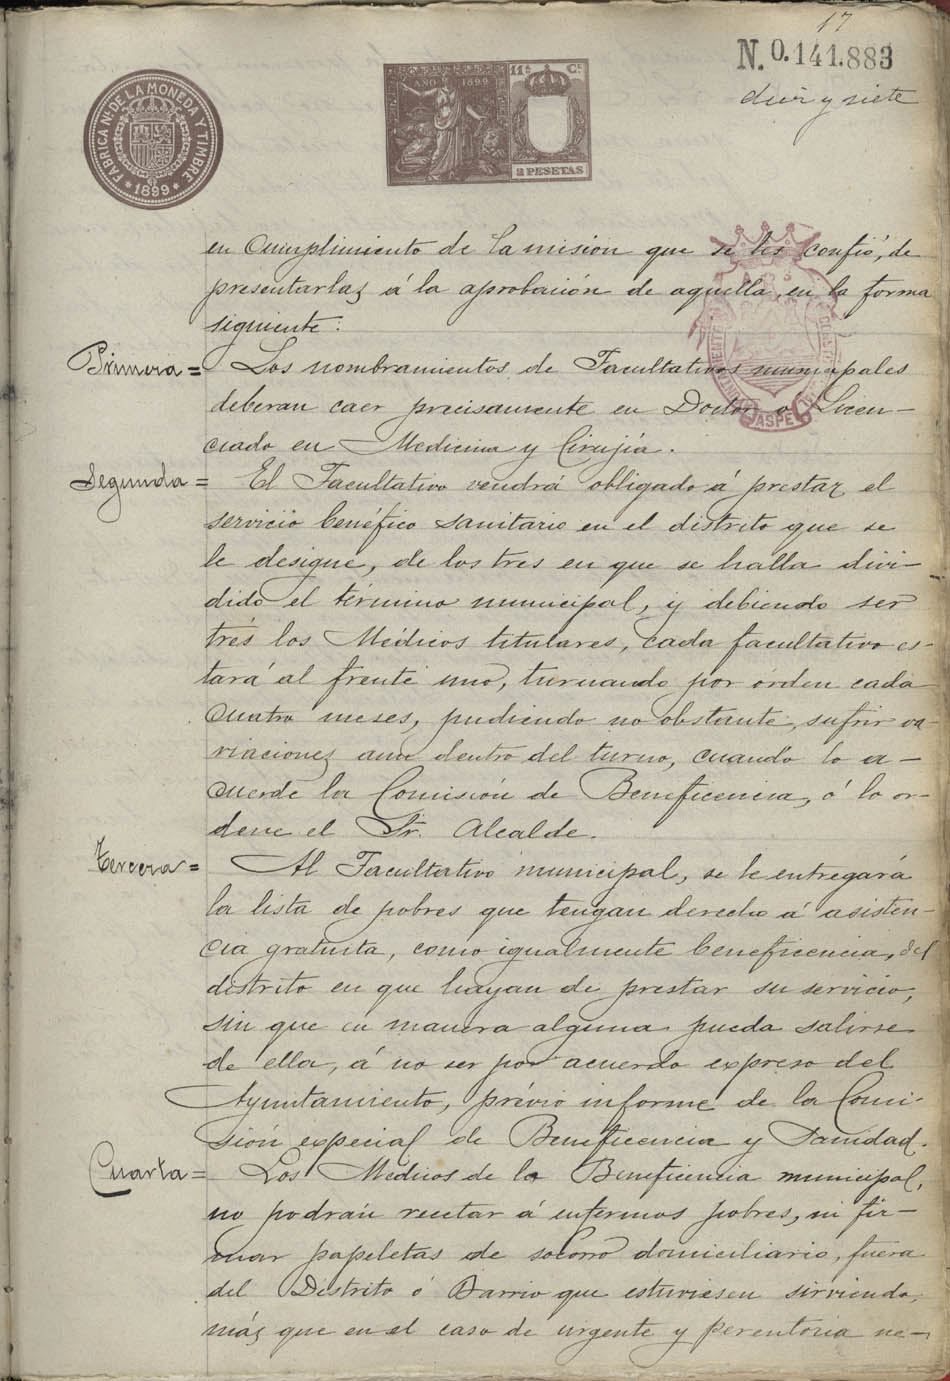 17
N. 0.141.883
diez y siete
FABRICA NL. DE LA MONEDA Y TIMBRE
* 1899 *
AÑO 1899
11ª Cª
2 PESETAS
CASPE
en cumplimiento de la misión que se les confió, de
presentarlas á la aprobación de aquella, en la forma
siguiente:
Primera = Los nombramientos de Facultativos municipales
deberan caer precisamente en Doctor o Licen-
ciado en Medicina y Cirujía.
Segunda = El Facultativo vendrá obligado á prestar el
servicio benéfico sanitario en el distrito que se
le designe, de los tres en que se halla divi-
dido el término municipal, y debiendo ser
tres los Médicos titulares, cada facultativo es-
tará al frente uno, turnando por órden cada
cuatro meses, pudiendo no obstante, sufrir va
riaciones aun dentro del turno, cuando lo a-
cuerde la Comisión de Beneficencia, ó lo or-
dene el Sr. Alcalde.
Tercera = Al Facultativo municipal, se le entregará
la lista de pobres que tengan derecho á asisten-
cia gratuita, como igualmente beneficencia, del
distrito en que hayan de prestar su servicio,
sin que en manera alguna pueda salirse
de ella, á no ser por acuerdo expreso del
Ayuntamiento, prévio informe de la Comi-
sión especial de Beneficencia y Sanidad.
Cuarta = Los Médicos de la Beneficencia municipal,
no podrán recetar á enfermos pobres, ni fir-
mar papeletas de socorro domiciliario, fuera
del Distrito ó Barrio que estuviesen sirviendo,
más que en el caso de urgente y perentoria ne-